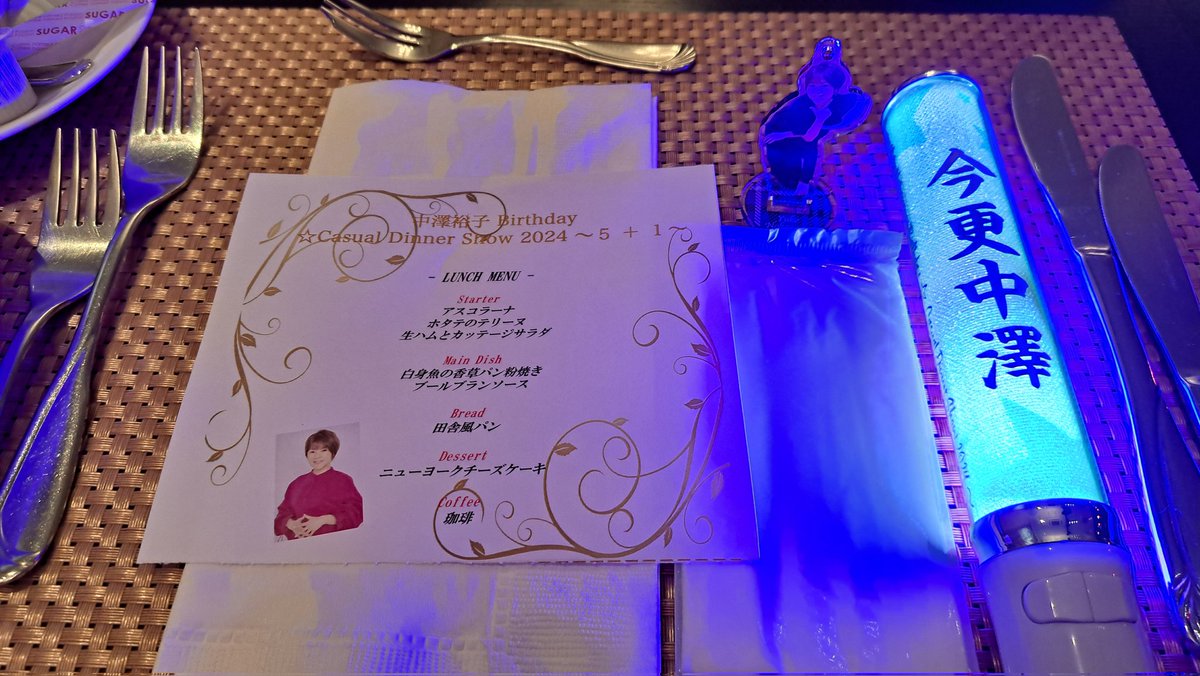 SUGAR
SUGAR
中澤裕子 Birthday
☆Casual Dinner Show 2024 ～５ ＋ １～
- LUNCH MENU -
Starter
アスコラーナ
ホタテのテリーヌ
生ハムとカッテージサラダ
Main Dish
白身魚の香草パン粉焼き
ブールブランソース
Bread
田舎風パン
Dessert
ニューヨークチーズケーキ
Coffee
珈琲
今更中澤